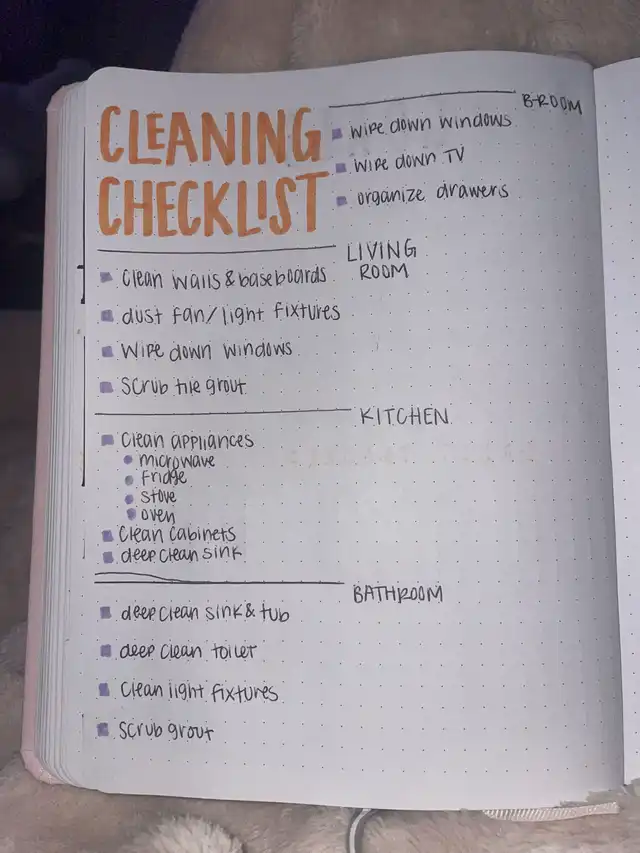 CLEANING
CHECKLIST
B-ROOM
wipe down windows
wipe down TV
organize drawers
LIVING
ROOM
Clean walls & baseboards
dust fan/light fixtures
Wipe down windows
Scrub tile grout
KITCHEN
Clean appliances
microwave
Fridge
stove
oven
Clean Cabinets
deep clean sink
BATHROOM
deep clean sink & tub
deep clean toilet
Clean light fixtures
Scrub grout